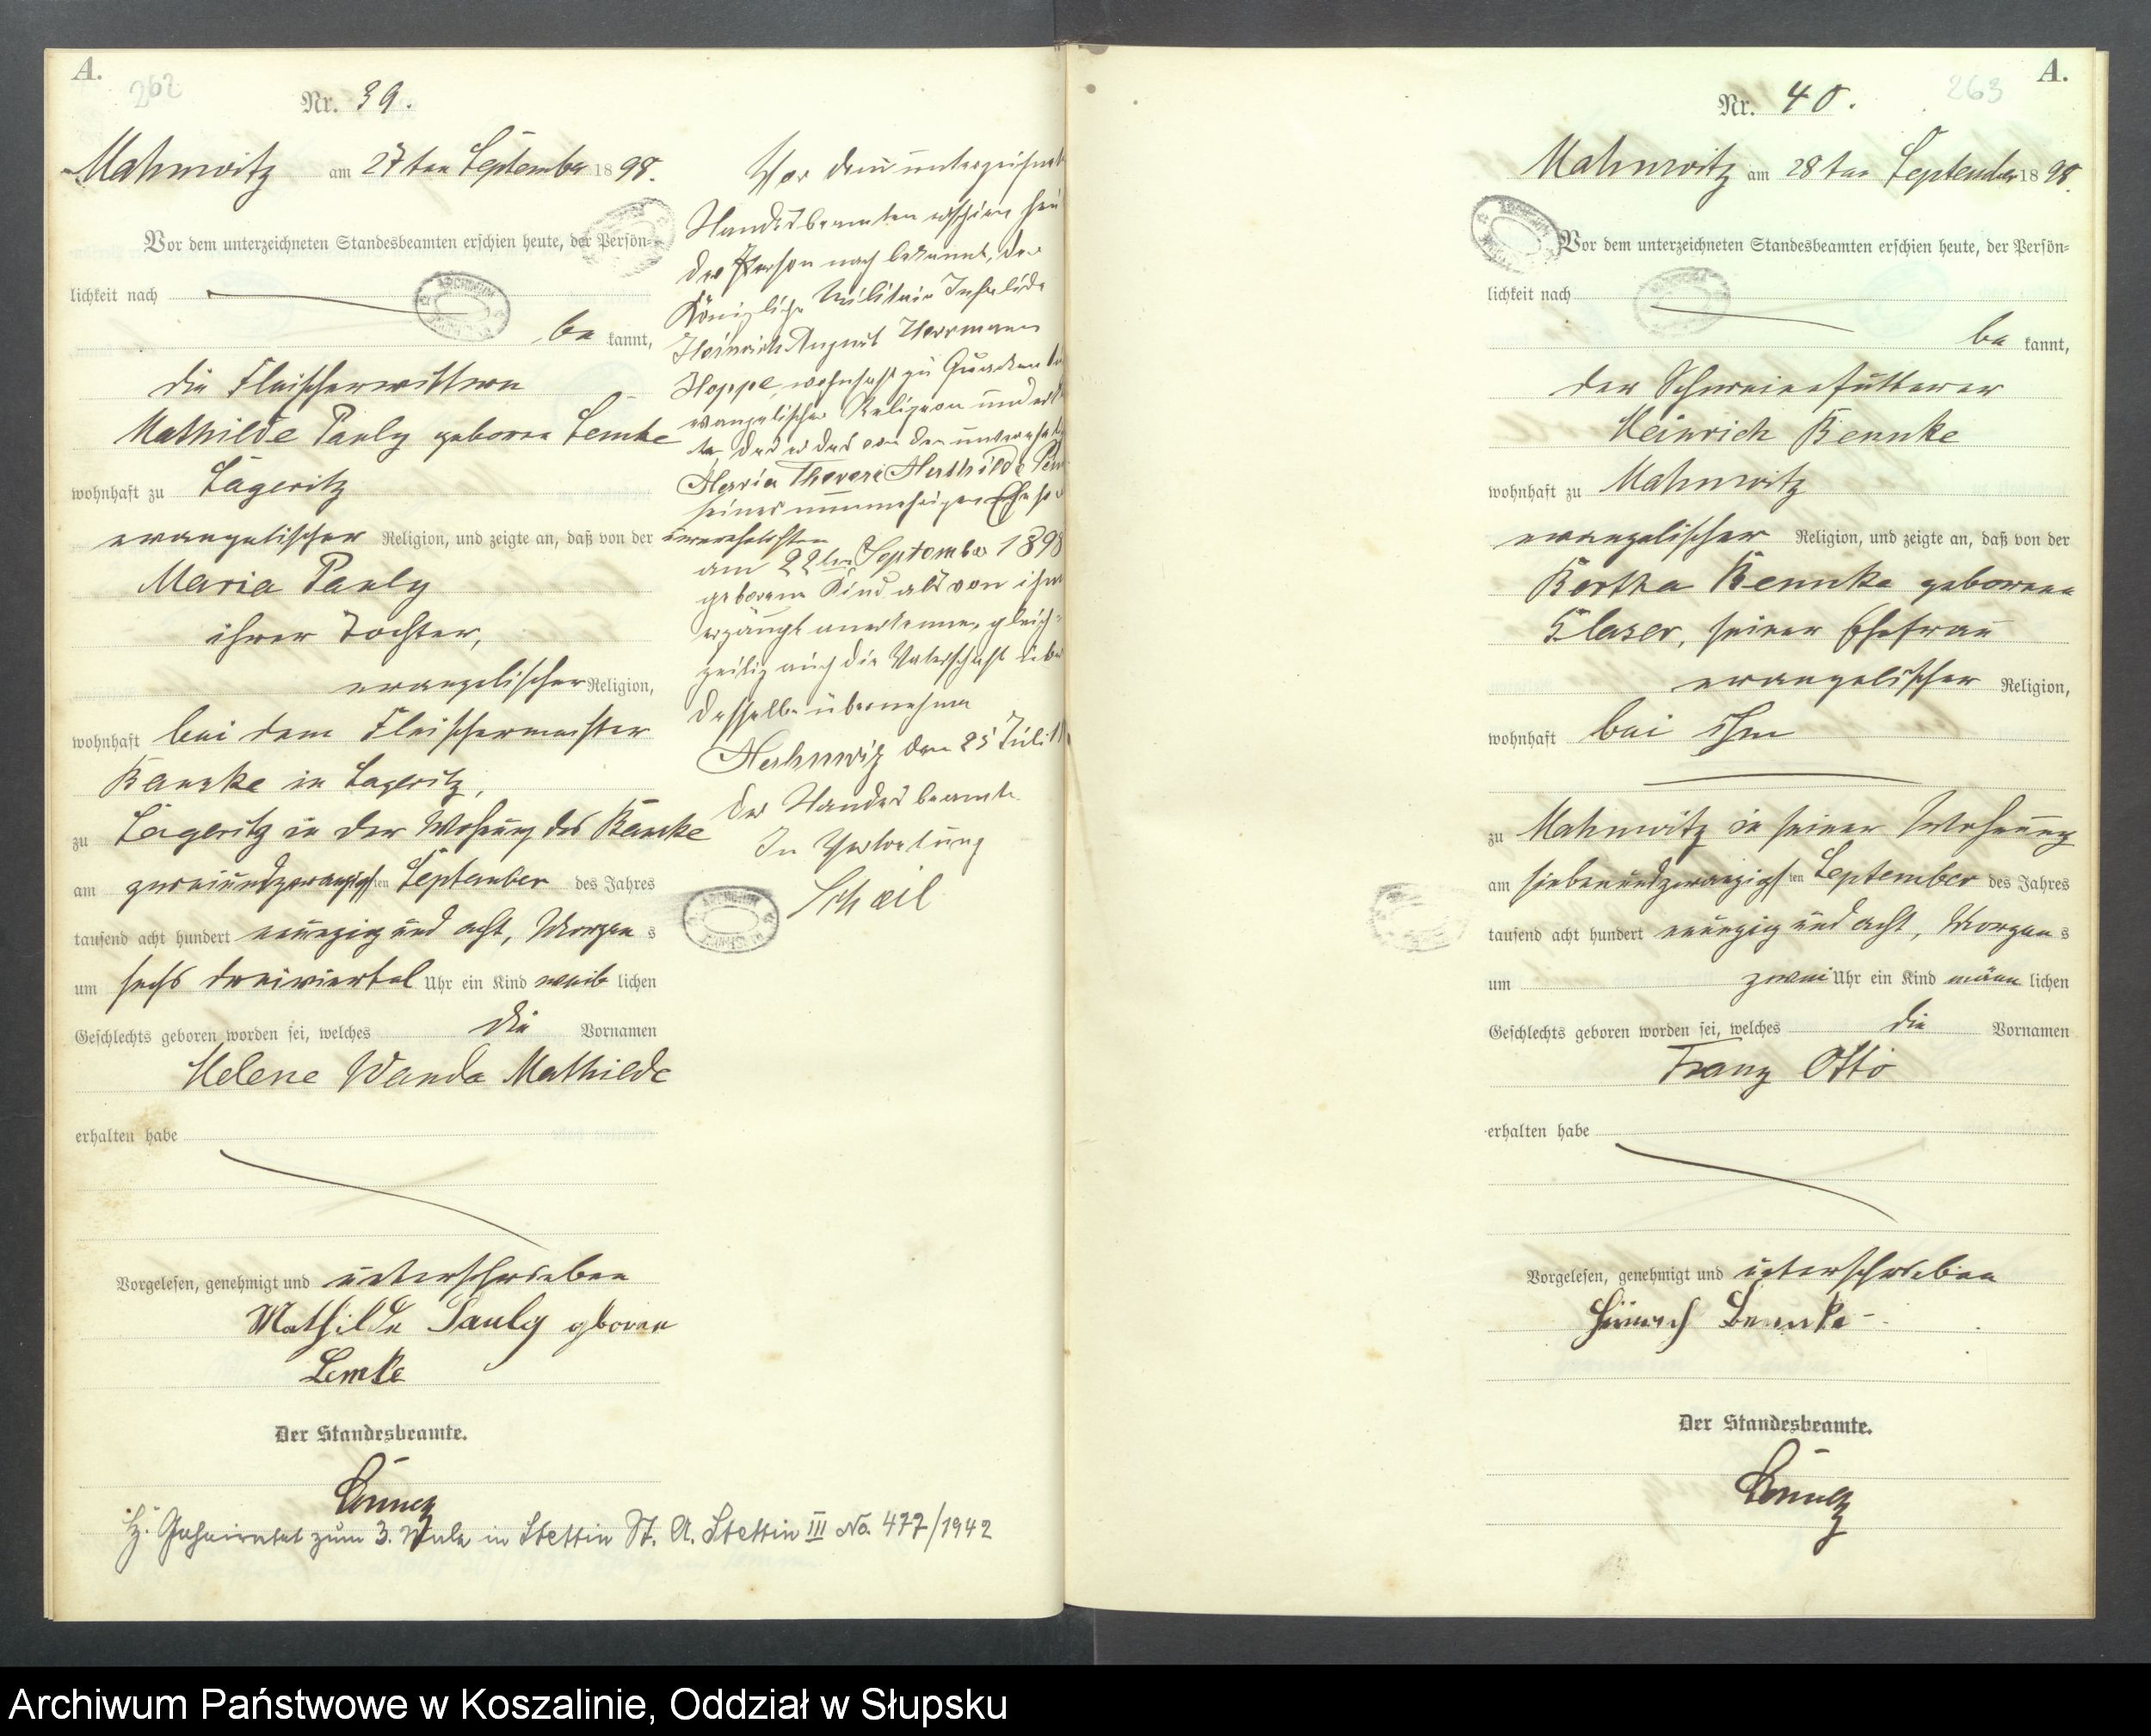 A.
262
Nr. 39.
Mahnwitz am 27ten September 1898.
Vor dem unterzeichneten Standesbeamten erschien heute, der Persön=
lichkeit nach
be kannt,
die Fleischerwittwe
Mathilde Pauly geborene Lemke
wohnhaft zu Lägeritz
evangelischer Religion, und zeigte an, daß von der
unverehelichten
Maria Pauly
ihrer Tochter,
evangelischer Religion,
wohnhaft bei dem Fleischermeister
in Lägeritz,
zu Lägeritz in der Wohnung des
am zweiundzwanzigsten September des Jahres
tausend acht hundert neunzig und acht, Morgens
um sechs dreiviertel Uhr ein Kind weiblichen
Geschlechts geboren worden sei, welches die Vornamen
Helene Wanda Mathilde
erhalten habe
Vorgelesen, genehmigt und unterschrieben
Mathilde Pauly geborene
Lemke
Der Standesbeamte.
H. Geheiratet zum 3. Male in Stettin St. A. Stettin III No. 477/1942
Vor dem unterzeichnet
Standesbeamten erschien heu
der Person nach bekannt, der
Königliche Militair Invalide
Heinrich August Herrmann
Hoppe, wohnhaft zu
evangelischer Religion und erklä
te, daß er das von der unverehel
Maria Therese Mathilde
seiner nunmehrigen Ehefra
am 22ten September 1898
geborene Kind als von ihm
erzeugt anerkenne, gleich=
zeitig auch die Vaterschaft über
dasselbe übernehme
Mahnwitz den 25 Juli
Der Standesbeamte
In Vertretung
A.
263
Nr. 40.
Mahnwitz am 28ten September 1898.
Vor dem unterzeichneten Standesbeamten erschien heute, der Persön=
lichkeit nach
be kannt,
der Schweinefütterer
Heinrich Bennke
wohnhaft zu Mahnwitz
evangelischer Religion, und zeigte an, daß von der
Bertha Bennke geborene
Klaser, seiner Ehefrau
evangelischer Religion,
wohnhaft bei ihm
zu Mahnwitz in seiner Wohnung
am siebenundzwanzigsten September des Jahres
tausend acht hundert neunzig und acht, Morgens
um zwei Uhr ein Kind männlichen
Geschlechts geboren worden sei, welches die Vornamen
Franz Otto
erhalten habe
Vorgelesen, genehmigt und unterschrieben
Heinrich Bennke
Der Standesbeamte.
Archiwum Państwowe w Koszalinie, Oddział w Słupsku